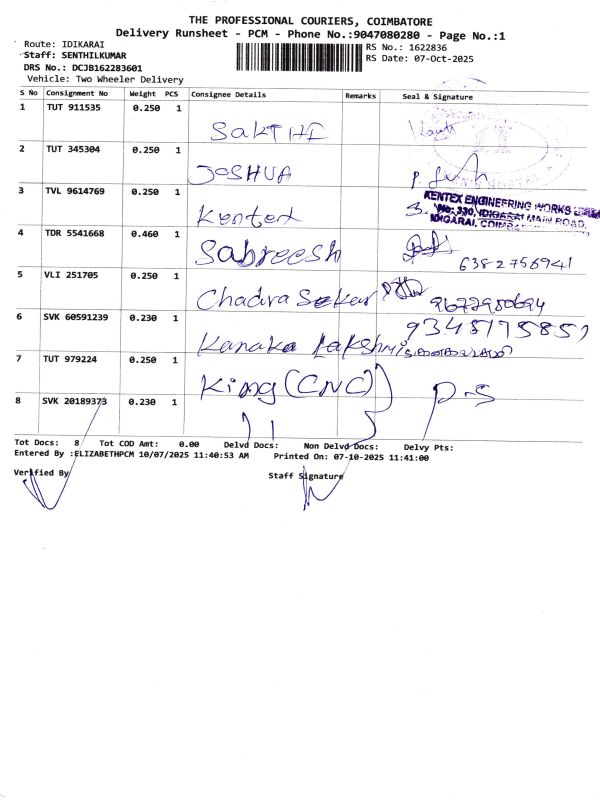 THE PROFESSIONAL COURIERS, COIMBATORE
Delivery Runsheet - PCM - Phone No.:9047080280 - Page No.:1
Route: IDIKARAI
Staff: SENTHILKUMAR
DRS No.: DCJB162283601
Vehicle: Two Wheeler Delivery
RS No.: 1622836
RS Date: 07-Oct-2025
S No Consignment No Weight PCS Consignee Details Remarks Seal & Signature
1 TUT 911535 0.250 1
SAKTHI
2 TUT 345304 0.250 1
JOSHUA
3 TVL 9614769 0.250 1
Kentex
KENTEX ENGINEERING WORKS
No: 330, IDIGARAI MAIN ROAD,
IDIGARAI, COIMBA
4 TDR 5541668 0.460 1
Sabreesh
6382756941
5 VLI 251705 0.250 1
Chadra Sekar
9677980694
6 SVK 60591239 0.230 1
Kanaka Lakshmi
9345175857
7 TUT 979224 0.250 1
King (CNC)
P-S
8 SVK 20189373 0.230 1
11
Tot Docs: 8 Tot COD Amt: 0.00 Delvd Docs: Non Delvd Docs: Delvy Pts:
Entered By :ELIZABETHPCM 10/07/2025 11:40:53 AM Printed On: 07-10-2025 11:41:00
Verified By Staff Signature